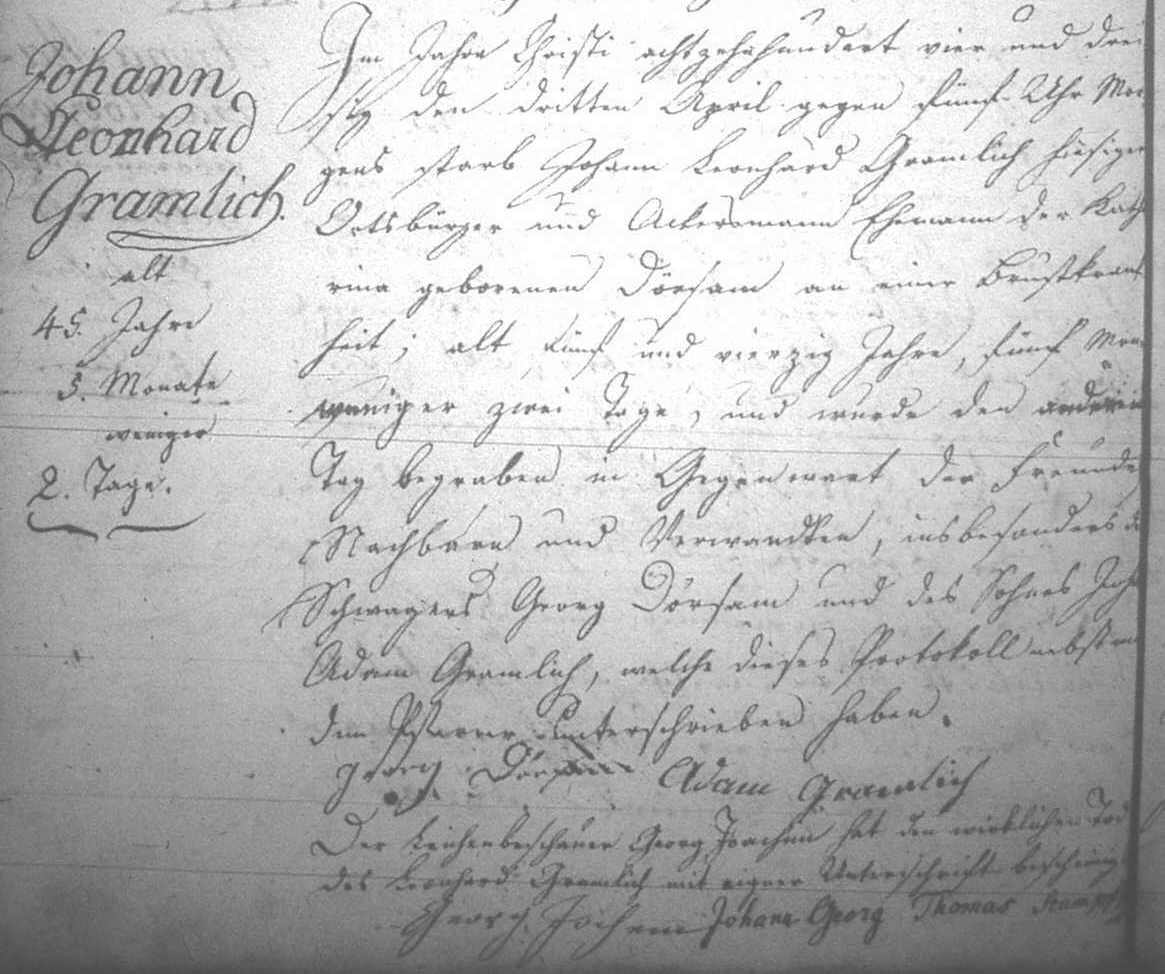 Johann
Leonhard
Gramlich.
alt
45. Jahre
5. Monate
weniger
2. Tage.
Im Jahre Christi achtzehnhundert vier und drei
sig den dritten April gegen fünf Uhr Mor
gens starb Johann Leonhard Gramlich hiesiger
Ortsbürger und Ackersmann Ehemann der Kath
rina geborenen Dörsam an einer Brustkrank
heit; alt fünf und vierzig Jahre, fünf Mon
weniger zwei Tage, und wurde den anderen
Tag begraben in Gegenwart der Freunde
Nachbarn und Verwandten, insbesonders
Schwagers Georg Dörsam und des Sohnes Joh
Adam Gramlich, welche dieses Protokoll nebst
dem Pfarrer unterschrieben haben.
Georg Dörsam Adam Gramlich
Der Leichenbeschauer Georg Joachim hat den wirklichen Tod
des Leonhard Gramlich mit eigner Unterschrift bescheinigt
Georg Jochem Johann Georg Thomas Stumpf